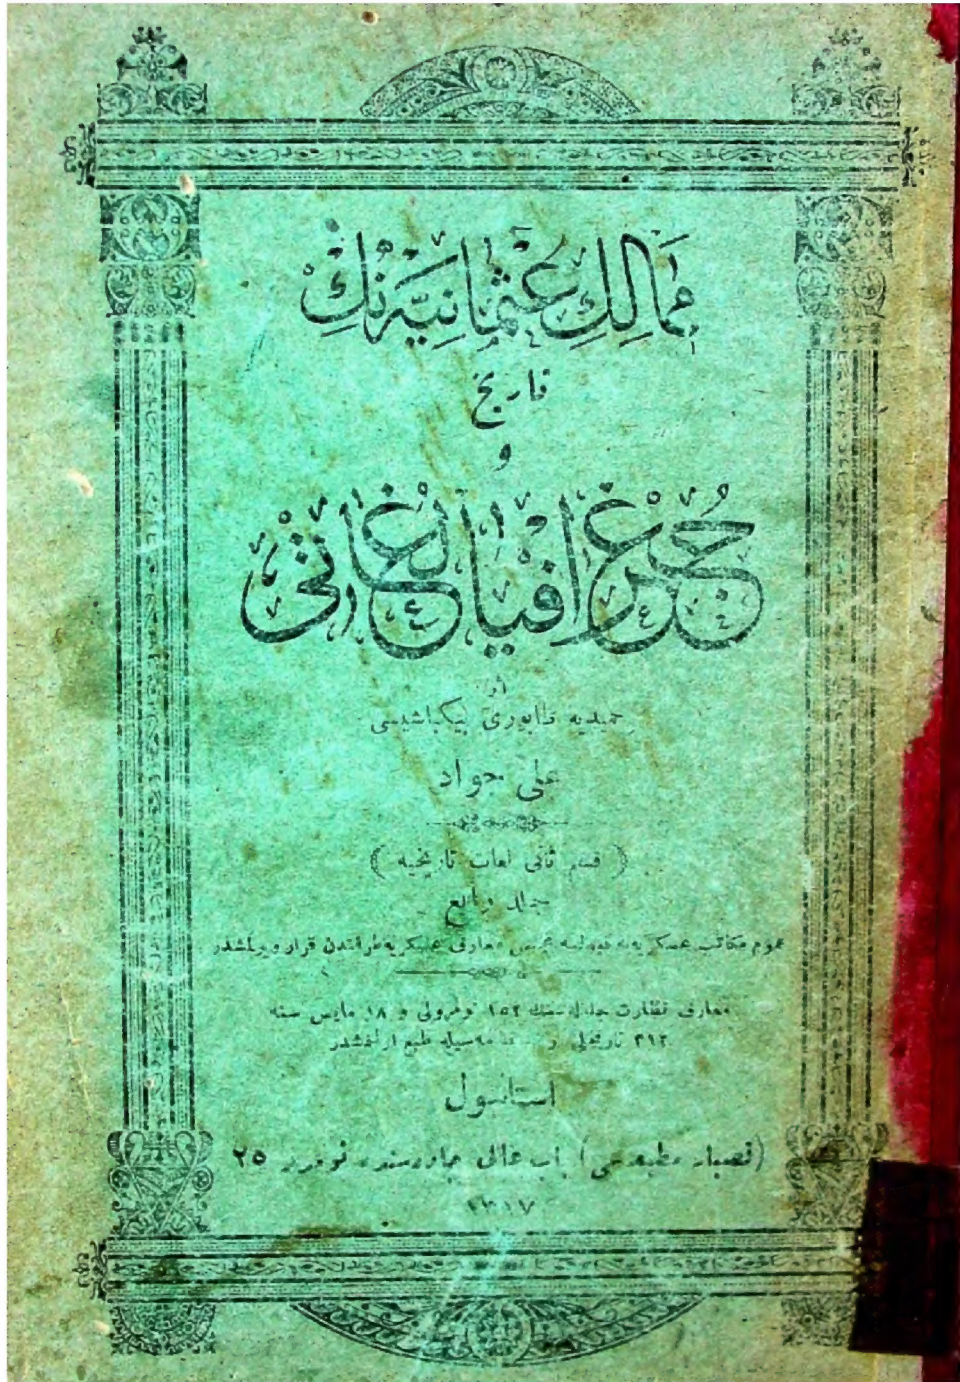 ممالك عثمانیه نك
تاریخ
و
جغرافیا لغاتی
اثر
حمیدیه طابوری بیكباشیسی
علی جواد
( قسم ثانی لغات تاریخیه )
جلد رابع
عموم مكاتب عسكریه‌یه قبولنه مجلس معارف عسكریه طرفندن قرار ویرلمشدر
معارف نظارت جلیله‌سنك ١٥٢ نومرولی و ١٨ مایس سنه
٣١٢ تاریخلی رخصتنامه‌سیله طبع اولنمشدر
استانبول
(قصبار مطبعه‌سی) باب عالی جاده‌سنده نومرو ٢٥
١٣١٧